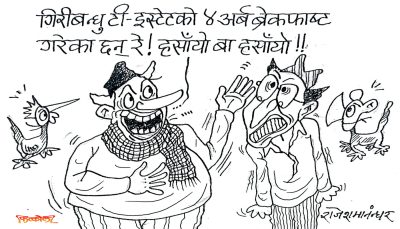 गिरीबन्धु टी-इस्टेटको ४ अर्ब ब्रेकफास्ट
गरेका छन् रे! हसाँयो बा हसाँयो!!
राजेशमानन्धर